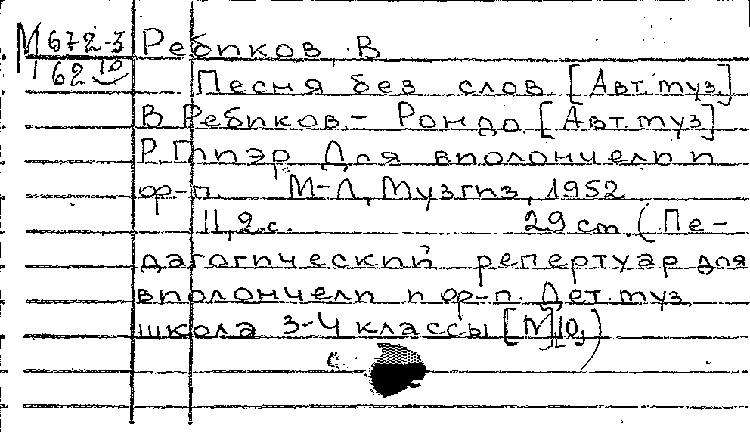 М 672-3 Ребиков В
62 10
Песня без слов [Авт. муз.]
В Ребиков - Рондо [Авт. муз]
Р. Глиэр Для виолончели и
ф-п. М-Л, Музгиз, 1952
11, 2 с. 29 cm. (Пе-
дагогический репертуар для
виолончели и ф-п Дет. муз
школа 3-4 классы [М]